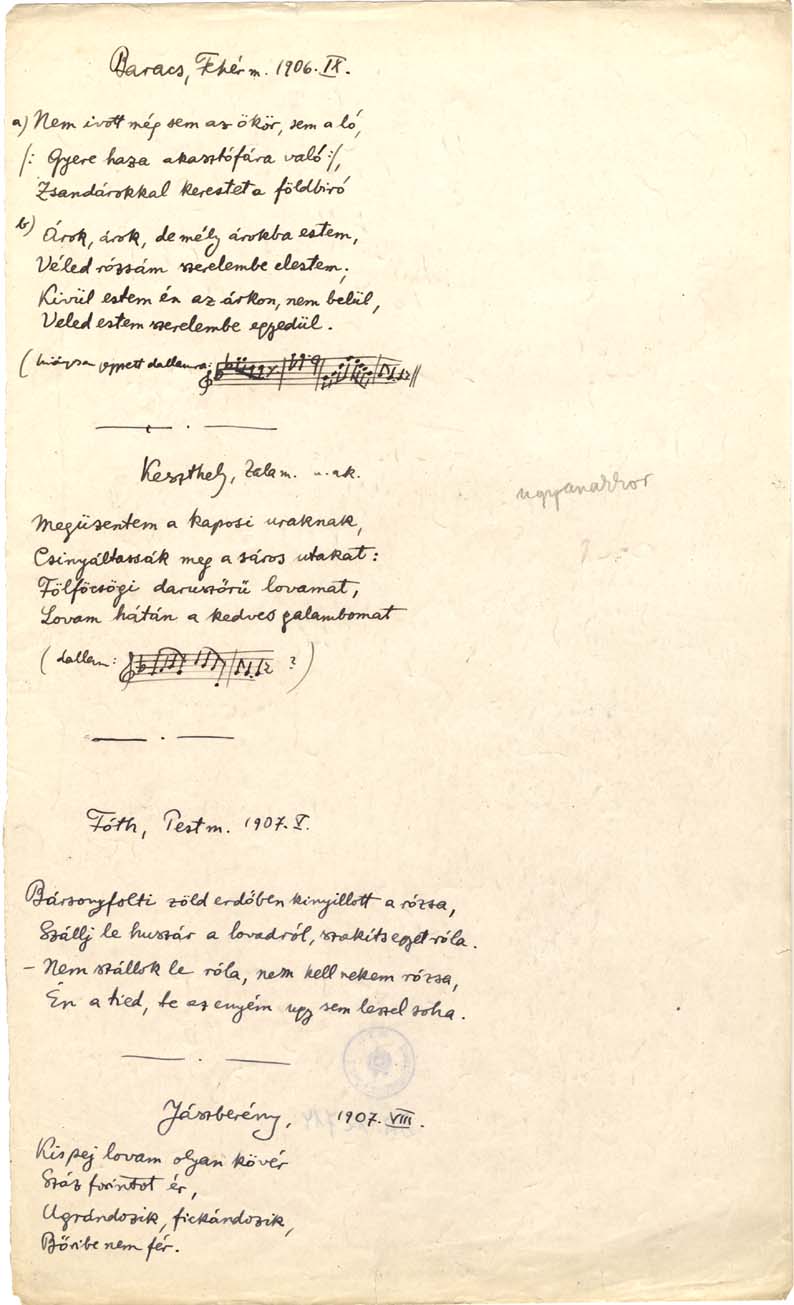 Baracs, Fehér m. 1906. IX.
a) Nem ivott még sem az ökör, sem a ló,
/: Gyere haza akasztófára való :/,
Zsandárokkal kerestet a földbiró
b) Árok, árok, de mély árokba estem,
Véled rózsám szerelembe elestem;
Kivül estem én az árkon, nem belül,
Veled estem szerelembe egyedül.
( dallamra:
Keszthely, Zala m. u. ak.
ugyanakkor
Megüzentem a kaposi uraknak,
Csinyáltassák meg a sáros utakat:
Fölföcsögi daruszőrű lovamat,
Lovam hátán a kedves galambomat
(dallam: ?)
Fóth, Pest m. 1907. V.
Bársonyfolti zöld erdőben kinyillott a rózsa,
Szállj le huszár a lovadról, szakits egyet róla.
– Nem szállok le róla, nem kell nekem rózsa,
Én a tied, te az enyém ugy sem leszel soha.
Jászberény, 1907. VIII.
Kis pej lovam olyan kövér
Száz forintot ér,
Ugrándozik, fickándozik,
Bőribe nem fér.